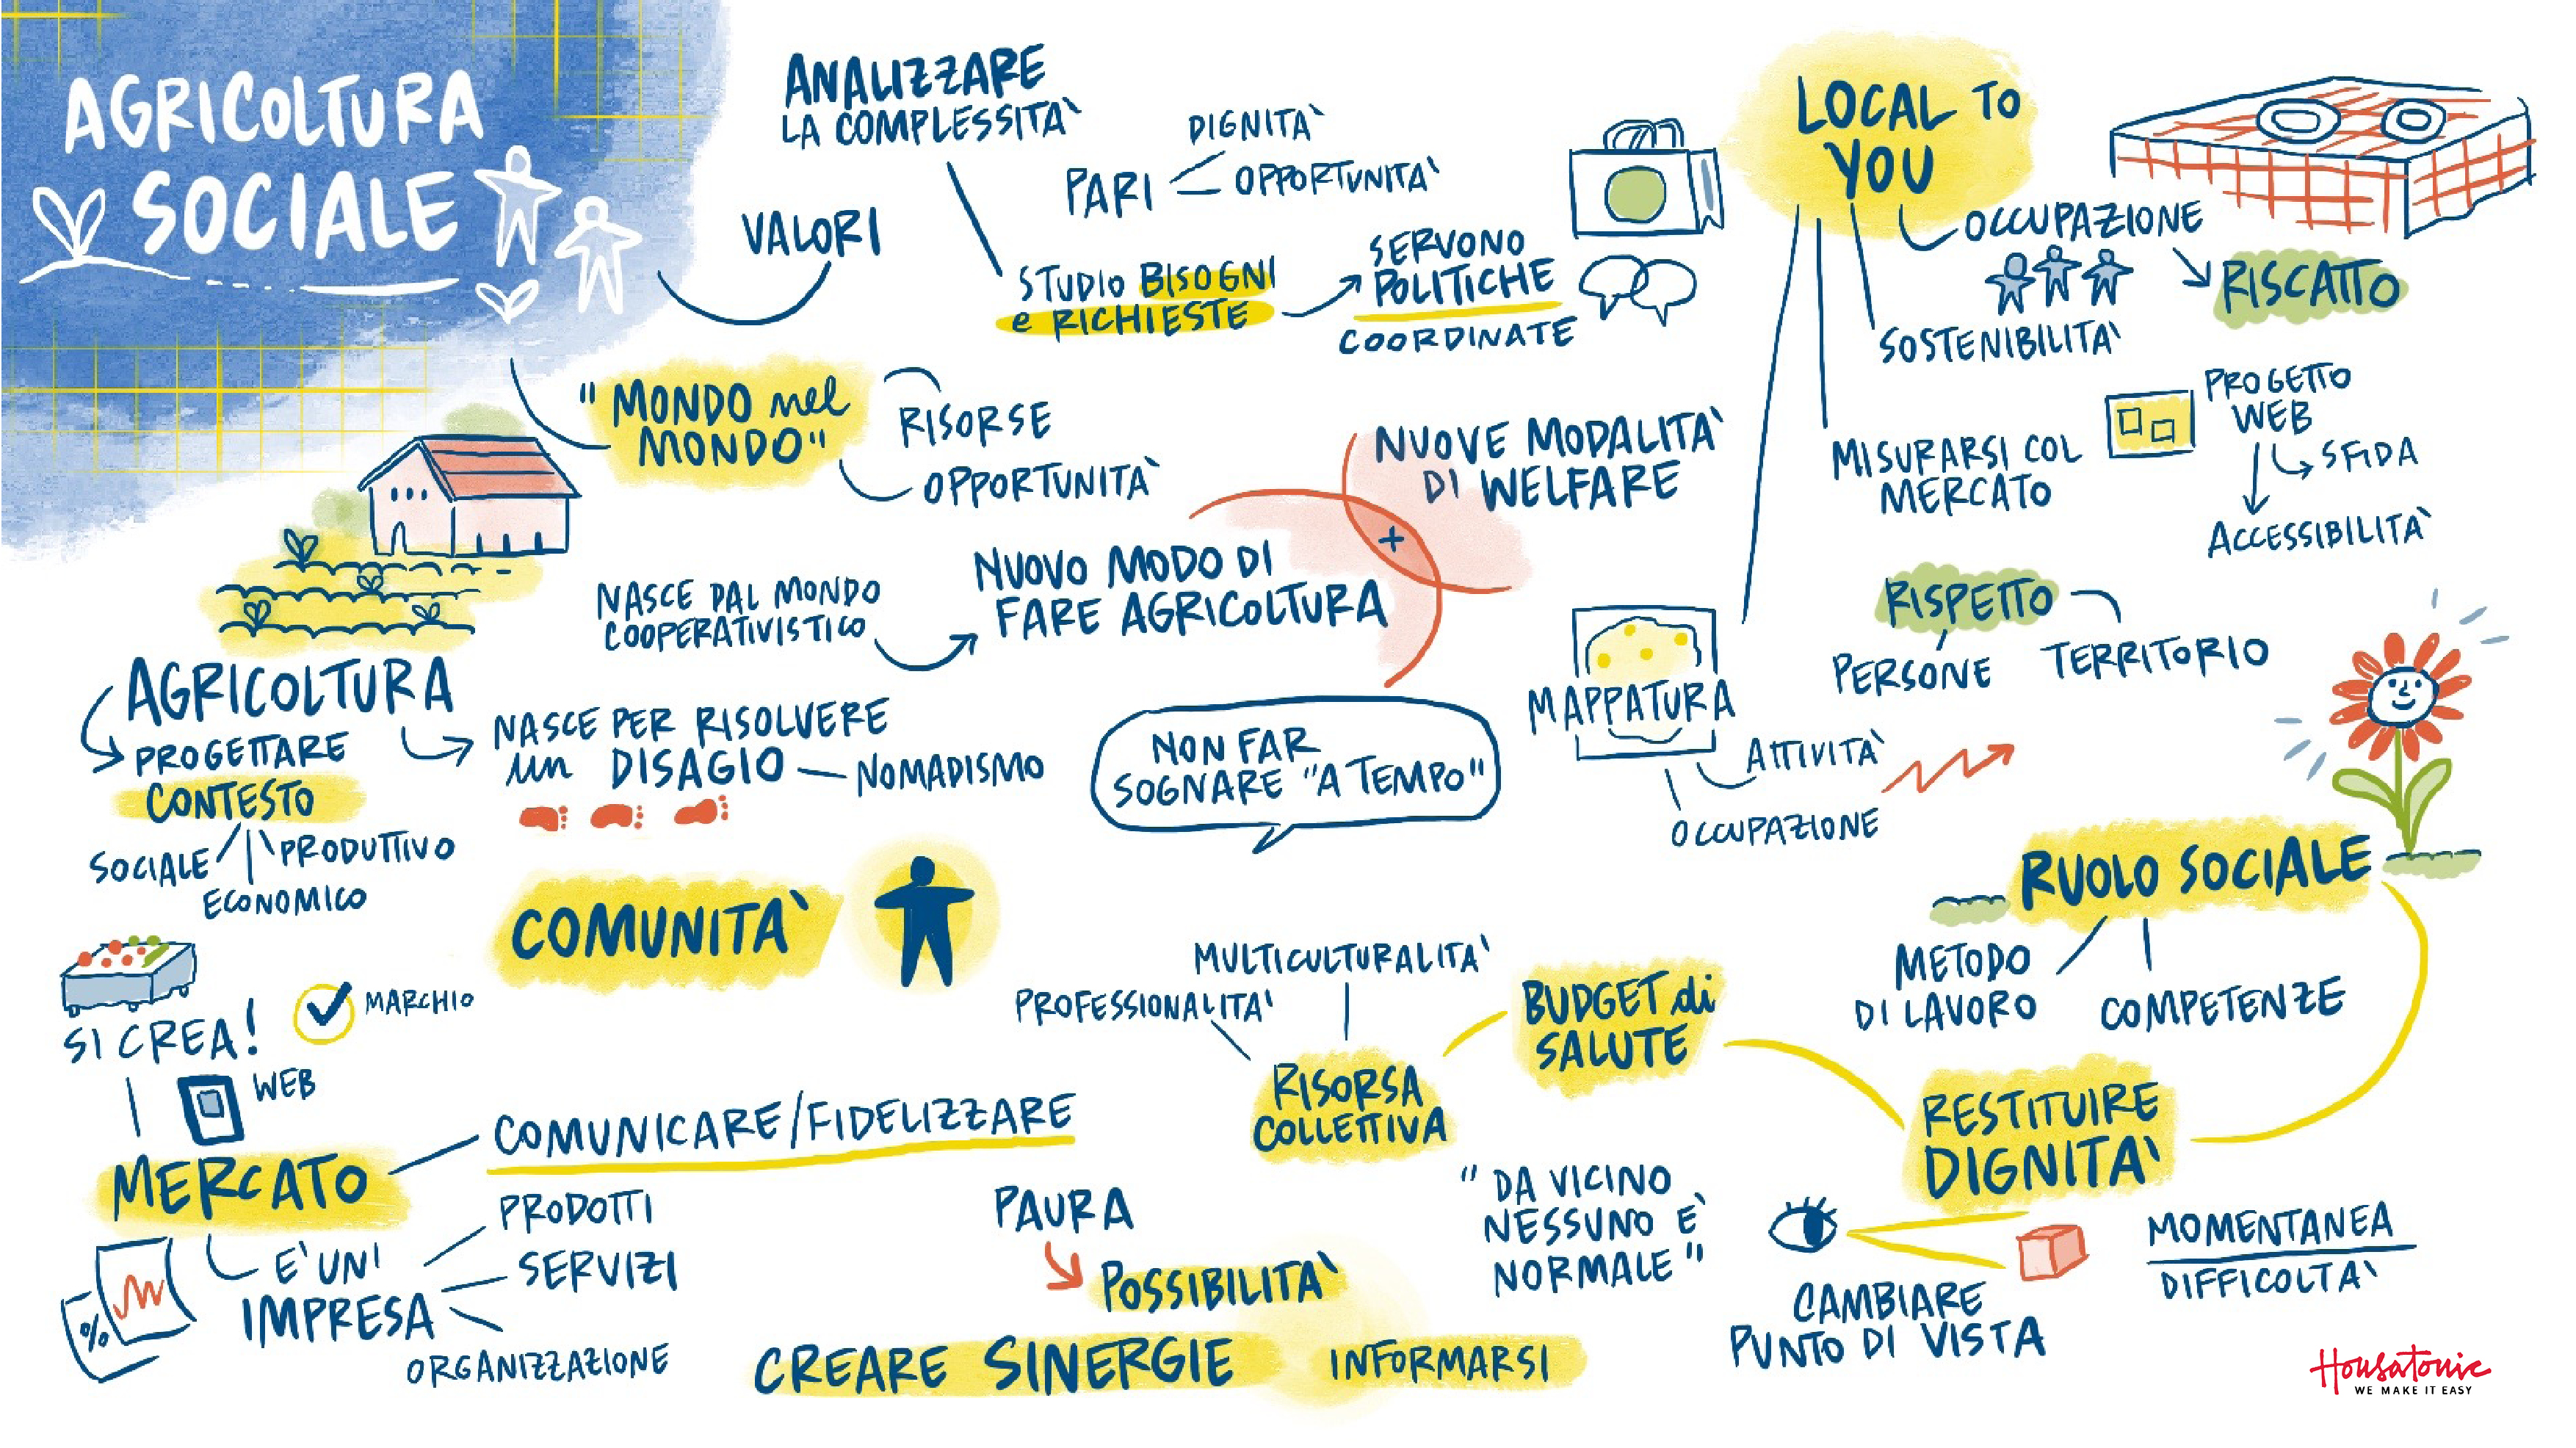 AGRICOLTURA
SOCIALE
ANALIZZARE
LA COMPLESSITA'
VALORI
PARI
DIGNITA'
OPPORTUNITA'
STUDIO BISOGNI
e RICHIESTE
SERVONO
POLITICHE
COORDINATE
"MONDO nel
MONDO"
RISORSE
OPPORTUNITA'
LOCAL TO
YOU
OCCUPAZIONE
RISCATTO
SOSTENIBILITA'
MISURARSI COL
MERCATO
PROGETTO
WEB
SFIDA
ACCESSIBILITA'
NUOVE MODALITA'
DI WELFARE
+
NASCE DAL MONDO
COOPERATIVISTICO
NUOVO MODO DI
FARE AGRICOLTURA
RISPETTO
PERSONE
TERRITORIO
MAPPATURA
ATTIVITA'
OCCUPAZIONE
AGRICOLTURA
PROGETTARE
CONTESTO
SOCIALE
PRODUTTIVO
ECONOMICO
NASCE PER RISOLVERE
un DISAGIO – NOMADISMO
NON FAR
SOGNARE "A TEMPO"
COMUNITA'
RUOLO SOCIALE
METODO
DI LAVORO
COMPETENZE
SI CREA!
MARCHIO
WEB
MERCATO
COMUNICARE/FIDELIZZARE
E' UN'
IMPRESA
PRODOTTI
SERVIZI
ORGANIZZAZIONE
%
MULTICULTURALITA'
PROFESSIONALITA'
RISORSA
COLLETTIVA
BUDGET di
SALUTE
RESTITUIRE
DIGNITA'
PAURA
POSSIBILITA'
"DA VICINO
NESSUNO E'
NORMALE"
CAMBIARE
PUNTO DI VISTA
MOMENTANEA
DIFFICOLTA'
CREARE SINERGIE
INFORMARSI
Housatonic
WE MAKE IT EASY